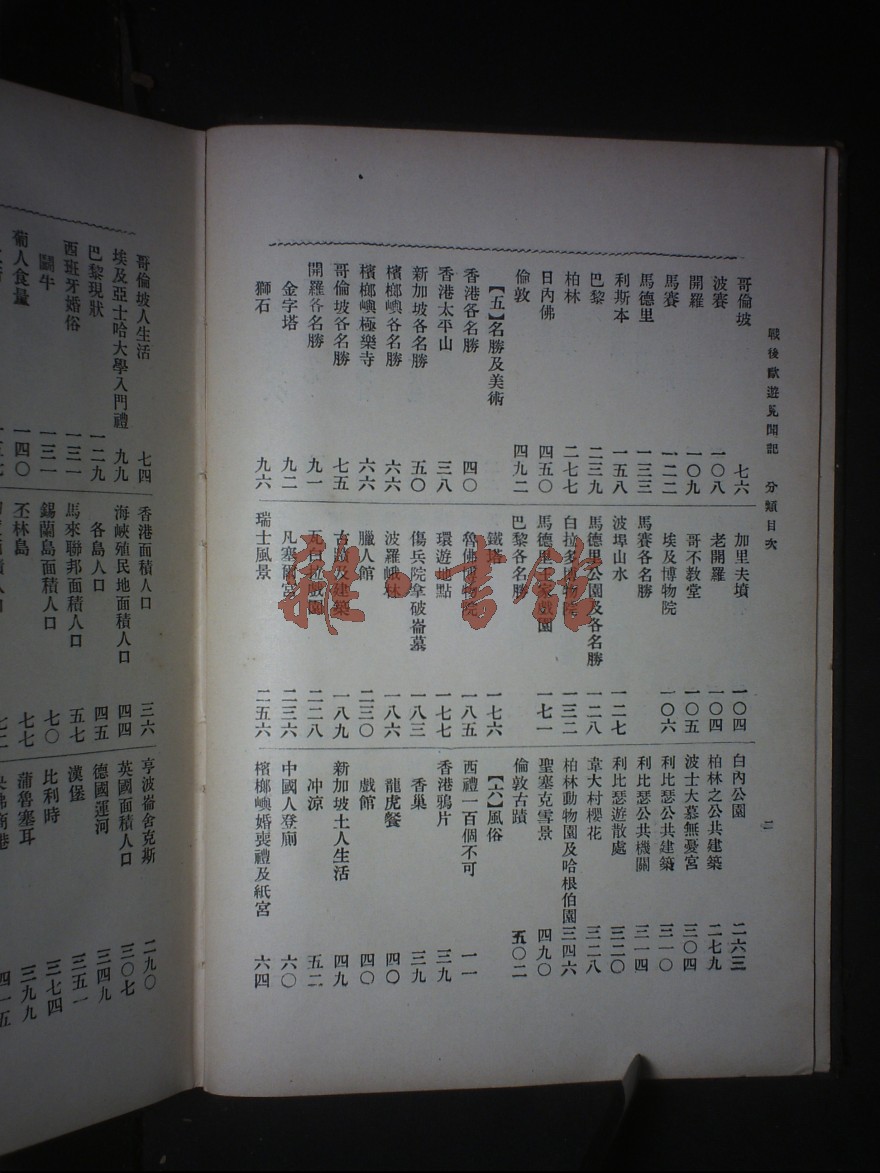 戰後歐遊見聞記　分類目次　二
哥倫坡　七六
波賽　一〇八
開羅　一〇九
馬賽　一二二
馬德里　一三三
利斯本　一五八
巴黎　二三九
柏林　二七七
日內佛　四五〇
倫敦　四九二
【五】名勝及美術
香港各名勝　四〇
香港太平山　三八
新加坡各名勝　五〇
檳榔嶼各名勝　六六
檳榔嶼極樂寺　六六
哥倫坡各名勝　七五
開羅各名勝　九一
金字塔　九二
獅石　九六
加里夫墳　一〇四
老開羅　一〇四
哥不敎堂　一〇五
埃及博物院　一〇六
馬賽各名勝
波埠山水　一二七
馬德里公園及各名勝　一二八
白拉多博物院　一三二
馬德里王家戲園　一七一
巴黎各名勝
鐵塔　一七六
魯佛博物院　一八五
環遊地點　一七七
傷兵院拿破崙墓　一八三
波羅峨林　一八六
臘人館　二三〇
古蹟及建築　一八九
瓦白拉戲園　二二八
凡塞爾宮　二三六
瑞士風景　二五六
白內公園　二六三
柏林之公共建築　二七九
波士大慕無憂宮　三〇四
利比瑟公共建築　三一〇
利比瑟公共機關　三一四
利比瑟遊散處　三二〇
韋大村櫻花　三二八
柏林動物園及哈根伯園　三四六
聖塞克雪景　四九〇
倫敦古蹟　五〇二
【六】風俗
西禮一百個不可　一一
香港鴉片　三九
香巢　三九
龍虎餐　四〇
戲館　四〇
新加坡土人生活　四九
冲涼　五二
中國人登廟　六〇
檳榔嶼婚喪禮及紙宮　六四
哥倫坡人生活　七四
埃及亞士哈大學入門禮　九九
巴黎現狀　一二九
西班牙婚俗　一三一
鬬牛　一三一
葡人食量　一四〇
香港面積人口　三六
海峽殖民地面積人口　四四
各島人口　四五
馬來聯邦面積人口　五七
錫蘭島面積人口　七〇
丕林島　七七
亨波崙舍克斯　二九〇
英國面積人口　三〇七
德國運河　三四九
漢堡　三五一
比利時　三七四
蒲魯塞耳　三九九
雜·書館